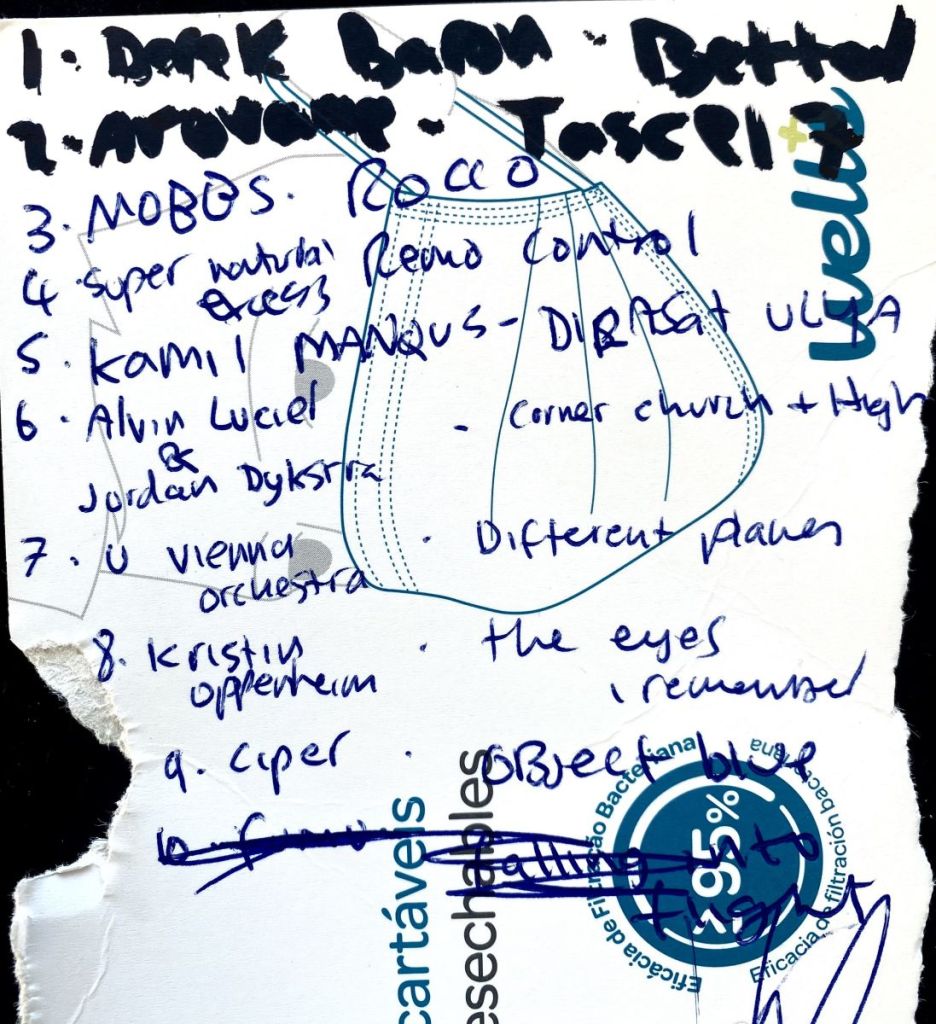 1. Derek Baron - Better
2. Arovane - Tascel
3. MOBBS. ROCCO
4. Super natural Remo Control
excess
5. Kamil MANQUS - DIRASAt ULYA
6. Alvin Lucier - Corner church + High
&
Jordan Dykstra
7. U Vienna . Different planes
orchestra
8. Kristin . the eyes
oppenheim i remember
9. ciper . OBJect blue
falling into
flight
Wells
cartáveis
esechables
>95%
Eficácia de Filtração Bacteriana
Eficacia de filtración bacteriana